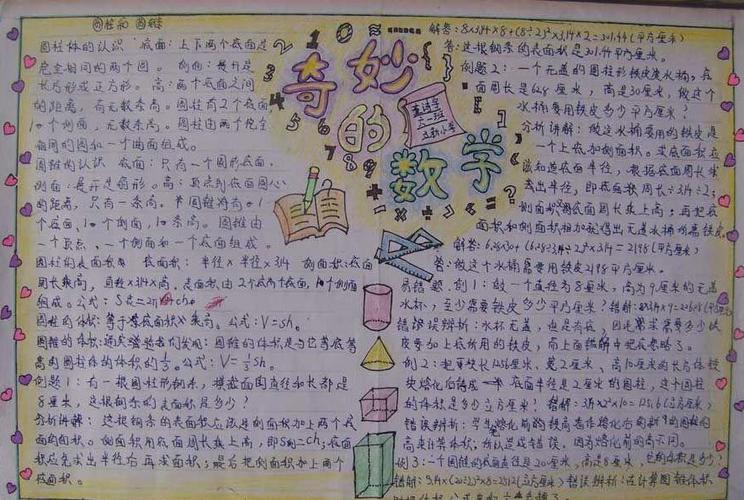 圆柱和圆锥
圆柱体的认识 底面:上下两个底面是
完全相同的两个圆。侧面:展开是
长方形或正方形。高:两个底面之间
的距离,有无数条高。圆柱有2个底面
1个侧面,无数条高。圆柱由两个完全
相同的圆和一个曲面组成。
圆锥的认识 底面:只有一个圆形底面,
侧面:展开是扇形。高:顶点到底面圆心
的距离,只有一条高。圆锥有1个
底面、1个侧面,1条高。圆锥由
一个顶点、一个侧面和一个底面组成。
圆柱的表面积 底面积:半径×半径×3.14 侧面积:底面
周长乘高,直径×3.14×高。表面积由2个底面,1个侧面
组成。公式:
圆柱的体积:等于底面积×乘高。公式:V=sh。
圆锥的体积:通过实验我们发现:圆锥的体积是与它等底等
高的圆柱体的体积的1/3。公式:V=1/3sh。
例题1:有一根圆柱形钢条,横截面的直径和长都是
8厘米,这根钢条的表面积是多少?
分析讲解:这根钢条的表面积应该是侧面积加上两个底
面的面积。侧面积用底面周长乘上高,即S侧=ch;底面
积应先求出半径后再求面积;最后把侧面积加上两个
底面积。
奇妙
的
数学
六一班
解答:8×3.14×8+(8÷2)²×3.14×2=301.44(平方厘米)
答:这根钢条的表面积是301.44平方厘米。
例题2:一个无盖的圆柱形铁皮水桶,底
面周长是62.8厘米,高是30厘米,做这个
水桶要用铁皮多少平方厘米?
分析讲解:做这水桶要用的铁皮是
一个上底加侧面积。求底面积应
该知道底面半径,根据底面周长
求出半径,即底面周长÷3.14÷2;
侧面积用底面周长乘上高;再把底
面积和侧面积相加
答:做这个水桶需要用铁皮2198平方厘米。
易错题:例1:做一个直径为8厘米,高为9厘米的无盖
水杯,至少需要铁皮多少平方厘米?错解:
错误辨析:水杯无盖,也是有底,因此需求需要多少铁
皮要加上底所用的铁皮,而上面错解中把底忽略了。
例2:把宽
块熔化后铸成一个底面半径是2厘米的圆柱,这个圆柱
的体积是多少立方厘米?错解:3.14×2²×10=125.6(立方厘米)
错误辨析:
高来计算体积,所以造成错误,因为熔化前的高不同。
例3:一个圆锥的底面直径是20厘米,高是8厘米,它的体积是多少?
错解:3.14×(20÷2)²×8=2512(立方厘米)错误辨析:在计算圆锥体积